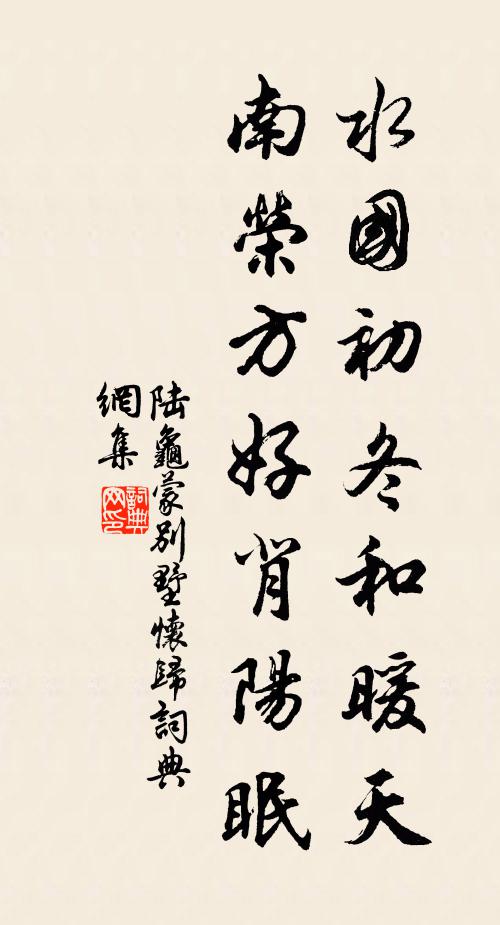 水國初冬和暖天
南榮方好背陽眠
陸龜蒙別墅懷歸詞典
網集
詞典网印